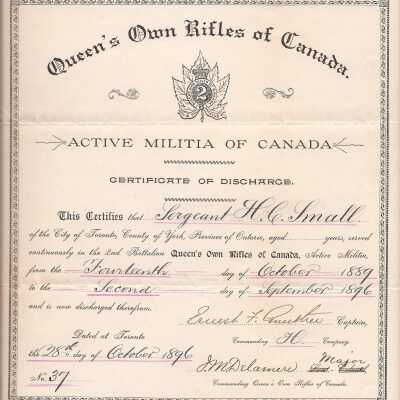 Queen's Own Rifles of Canada.
2
ACTIVE MILITIA OF CANADA
CERTIFICATE OF DISCHARGE.
This Certifies that Sergeant H. C. Small
of the City of Toronto, County of York, Province of Ontario, aged years, served
continuously in the 2nd Battalion Queen's Own Rifles of Canada, Active Militia,
from the Fourteenth day of October 1889
to the Second day of September 1896
and is now discharged therefrom.
Ernest F. Captain,
Dated at Toronto Commanding H. Company.
the 28th day of October 1896
J. M. Delamere Major
No. 37 Commanding Queen's Own Rifles of Canada.